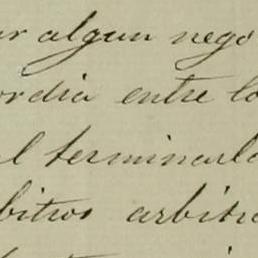 ar algun nego
ordia entre lo
al terminarlo
bitros arbitra